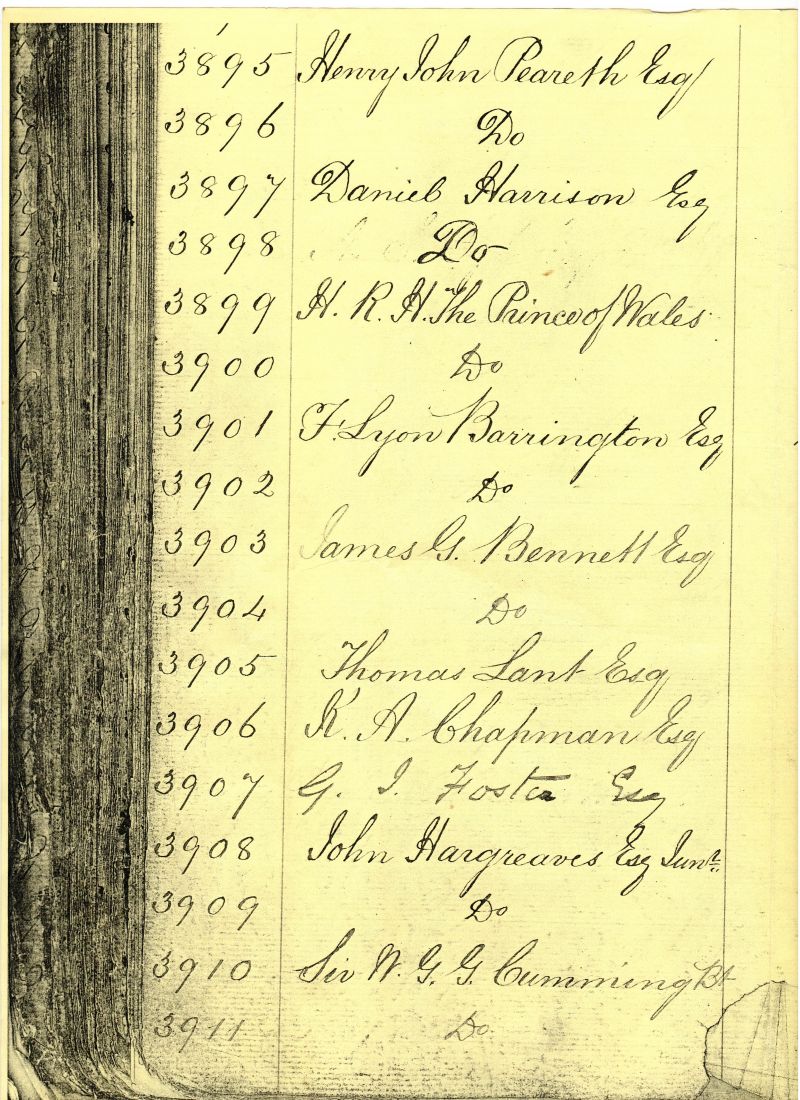 3895 Henry John Peareth Esq
3896 Do
3897 Daniel Harrison Esq
3898 Do
3899 H. R. H. The Prince of Wales
3900 Do
3901 F. Lyon Barrington Esq
3902 Do
3903 James G. Bennett Esq
3904 Do
3905 Thomas Lant Esq
3906 K. A. Chapman Esq
3907 G. J. Foster Esq
3908 John Hargreaves Esq Junr
3909 Do
3910 Sir W. G. G. Cumming Bt
3911 Do